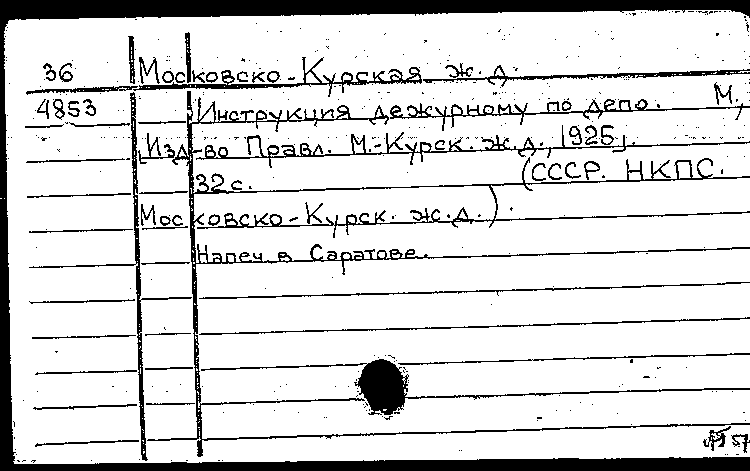 36 Московско-Курская ж.д.
4853 Инструкция дежурному по депо. М.,
[Изд-во Правл. М.-Курск. ж.д., 1925].
32 с. (СССР. НКПС.
Московско-Курск. ж.д.).
Напеч. в Саратове.
57